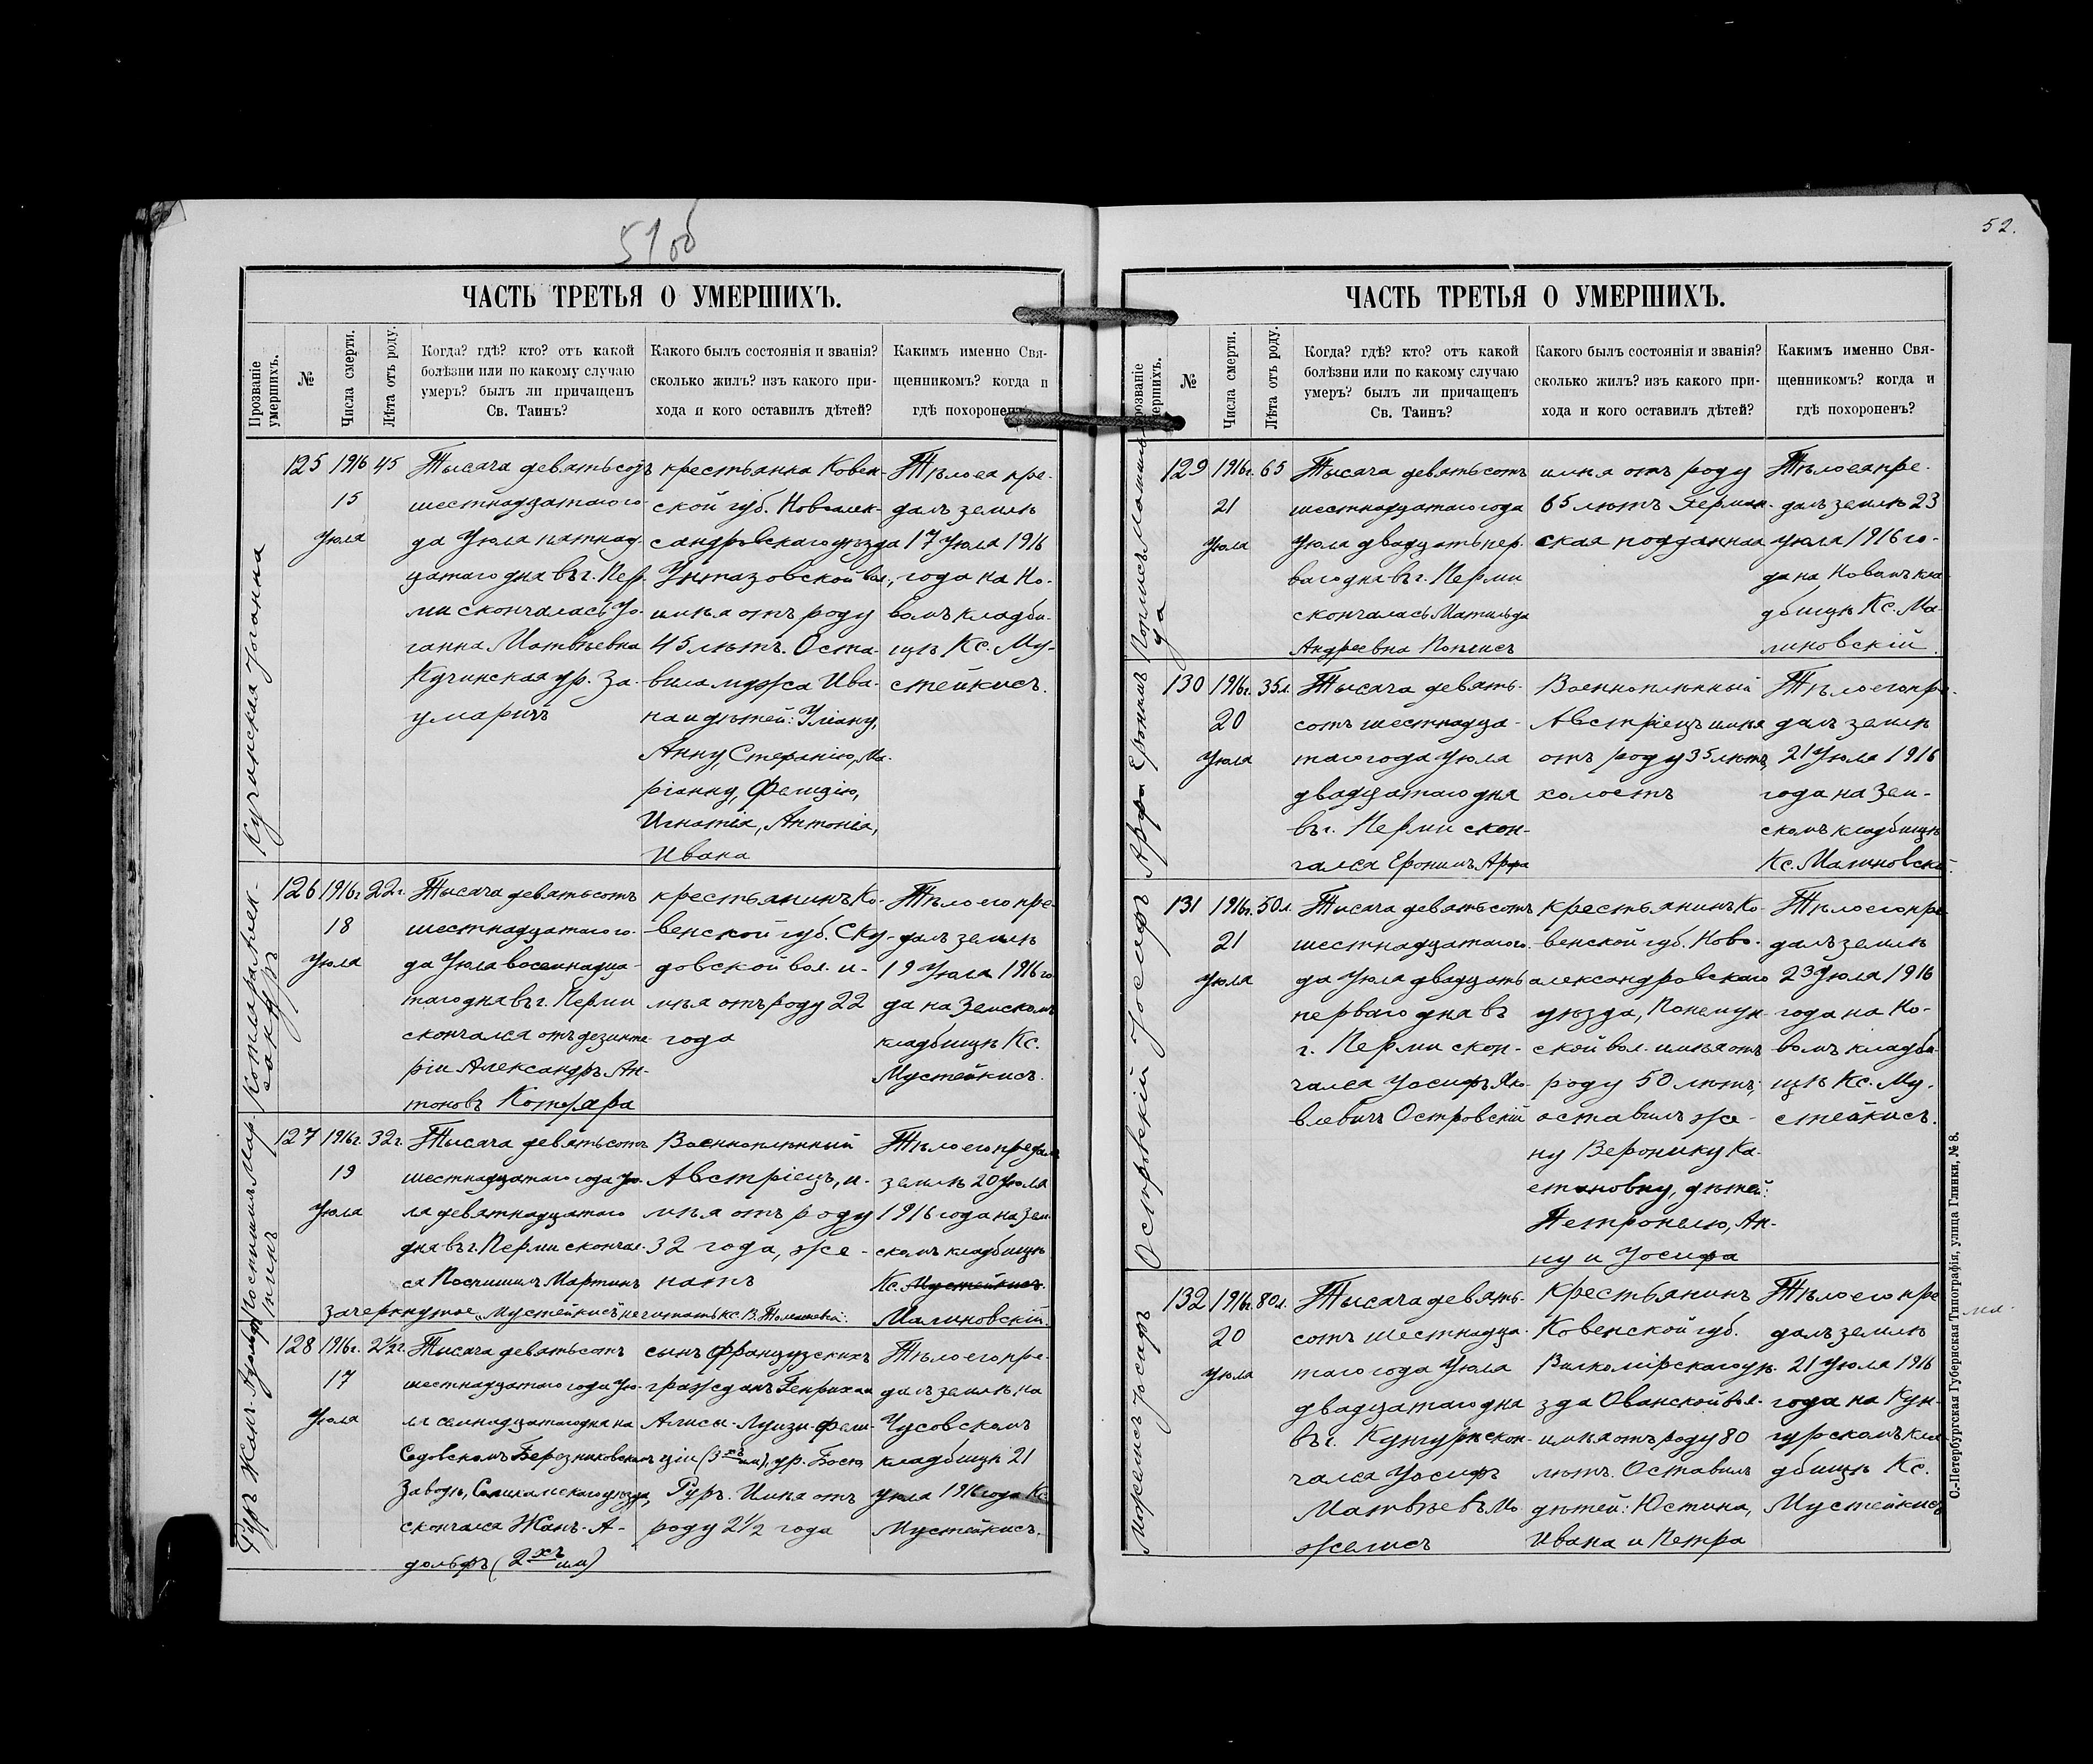 51 об
ЧАСТЬ ТРЕТЬЯ О УМЕРШИХЪ.
Прозваніе умершихъ.
№
Числа смерти.
Лѣта отъ роду.
Когда? гдѣ? кто? отъ какой
болѣзни или по какому случаю
умеръ? былъ ли причащенъ
Св. Таинъ?
Какого былъ состоянія и званія?
сколько жилъ? изъ какого при-
хода и кого оставилъ дѣтей?
Какимъ именно Свя-
щенникомъ? когда и
гдѣ похороненъ?
Кучинская Іоганна
125 1916 45
15
Іюля
Тысяча девятьсотъ
шестнадцатаго го-
да Іюля пятнад-
цатаго дня въ г. Пер-
ми скончалась Іо-
ганна Матвѣевна
Кучинская ур. За-
умаричъ
крестьянка Ковен-
ской губ. Новоалек-
сандровскаго уѣзда
вол.,
имѣя отъ роду
45 лѣтъ. Оста-
вила мужа Ива-
на и дѣтей: Уліану,
Анну, Стефанію, Ма-
ріанну, Фелицію,
Игнатія, Антонія,
Ивана
Тѣло ея пре-
далъ землѣ
17 Іюля 1916
года на Но-
вомъ кладби-
щѣ Кс. Му-
стейкисъ.
Александръ
126 1916г. 22г.
18
Іюля
Тысяча девятьсотъ
шестнадцатаго го-
да Іюля восемнадца-
таго дня въ г. Перми
скончался отъ дезинте-
ріи Александръ Ан-
тоновъ
крестьянинъ Ко-
венской губ. Ску-
довской вол. и-
мѣя отъ роду 22
года
Тѣло его пре-
далъ землѣ
19 Іюля 1916 го-
да на Земскомъ
кладбищѣ Кс.
Мустейкисъ.
Мартинъ
127 1916г. 32г.
19
Іюля
Тысяча девятьсотъ
шестнадцатаго года Ію-
ля девятнадцатаго
дня въ г. Перми сконча-
ся Мартинъ
Военноплѣнный
Австріецъ, и-
мѣя отъ роду
32 года, же-
натъ
Тѣло его предалъ
землѣ 20 Іюля
1916 года на Зем-
скомъ кладбищѣ
Кс. Мустейкисъ.
Малиновскій.
зачеркнутое „Мустейкисъ" не читать кс. В.
Гуръ Жанъ-Адольфъ
128 1916г. 2½г.
17
Іюля
Тысяча девятьсотъ
шестнадцатаго года Ію-
ля семнадцатаго дня на
Содовскомъ Березниковскомъ
Заводѣ, Соликамскаго уѣзда,
скончался Жанъ-А-
дольфъ (2хъ им)
сынъ французскихъ
гражданъ Генриха и
Алисы-Луизы-Фели-
ціи (3хъ им), ур. Боскъ
Гуръ. Имѣя отъ
роду 2½ года
Тѣло его пре-
далъ землѣ на
Чусовскомъ
кладбищѣ 21
Іюля 1916 года Кс.
Мустейкисъ.
52.
ЧАСТЬ ТРЕТЬЯ О УМЕРШИХЪ.
Прозваніе умершихъ.
№
Числа смерти.
Лѣта отъ роду.
Когда? гдѣ? кто? отъ какой
болѣзни или по какому случаю
умеръ? былъ ли причащенъ
Св. Таинъ?
Какого былъ состоянія и званія?
сколько жилъ? изъ какого при-
хода и кого оставилъ дѣтей?
Какимъ именно Свя-
щенникомъ? когда и
гдѣ похороненъ?
129 1916г. 65
21
Іюля
Тысяча девятьсотъ
шестнадцатаго года
Іюля двадцать пер-
ваго дня въ г. Перми
скончалась Матильда
Андреевна
имѣя отъ роду
65 лѣтъ. Герман-
ская подданная
Тѣло ея пре-
далъ землѣ 23
Іюля 1916 го-
да на Новомъ кла-
дбищѣ Кс. Ма-
линовскій.
Арфа Еронимъ
130 1916г. 35л.
20
Іюля
Тысяча девять-
сотъ шестнадца-
таго года Іюля
двадцатаго дня
въ г. Перми скон-
чался Еронимъ Арфа
Военноплѣнный
Австріецъ имѣя
отъ роду 35 лѣтъ,
холостъ
Тѣло его пре-
далъ землѣ
21 Іюля 1916
года на Зем-
скомъ кладбищѣ
Кс. Малиновскій.
Островскій Іосифъ
131 1916г. 50л.
21
Іюля
Тысяча девятьсотъ
шестнадцатаго го-
да Іюля двадцать
перваго дня въ
г. Перми скон-
чался Іосифъ Яко-
влевичъ Островскій
крестьянинъ Ко-
венской губ. Ново-
александровскаго
уѣзда, Понемун-
ской вол. имѣя отъ
роду 50 лѣтъ,
оставилъ же-
ну Веронику Ка-
етановну, дѣтей:
Петронелю, Ан-
ну и Іосифа
Тѣло его пре-
далъ землѣ
23 Іюля 1916
года на Но-
вомъ кладби-
щѣ Кс. Му-
стейкисъ.
Можелисъ Іосифъ
132 1916г. 80л.
20
Іюля
Тысяча девять-
сотъ шестнадца-
таго года Іюля
двадцатаго дня
въ г. Кунгурѣ скон-
чался Іосифъ
Матвѣевъ Мо-
желисъ
крестьянинъ
Ковенской губ.
Вилкомірскаго уѣ-
зда Ованской вол.
имѣя отъ роду 80
лѣтъ. Оставилъ
дѣтей: Юстина,
Ивана и Петра
Тѣло его пре-
далъ землѣ
21 Іюля 1916
года на Кун-
гурскомъ кла-
дбищѣ Кс.
Мустейкисъ
С.-Петербургская Губернская Типографія, улица Глинки, № 8.